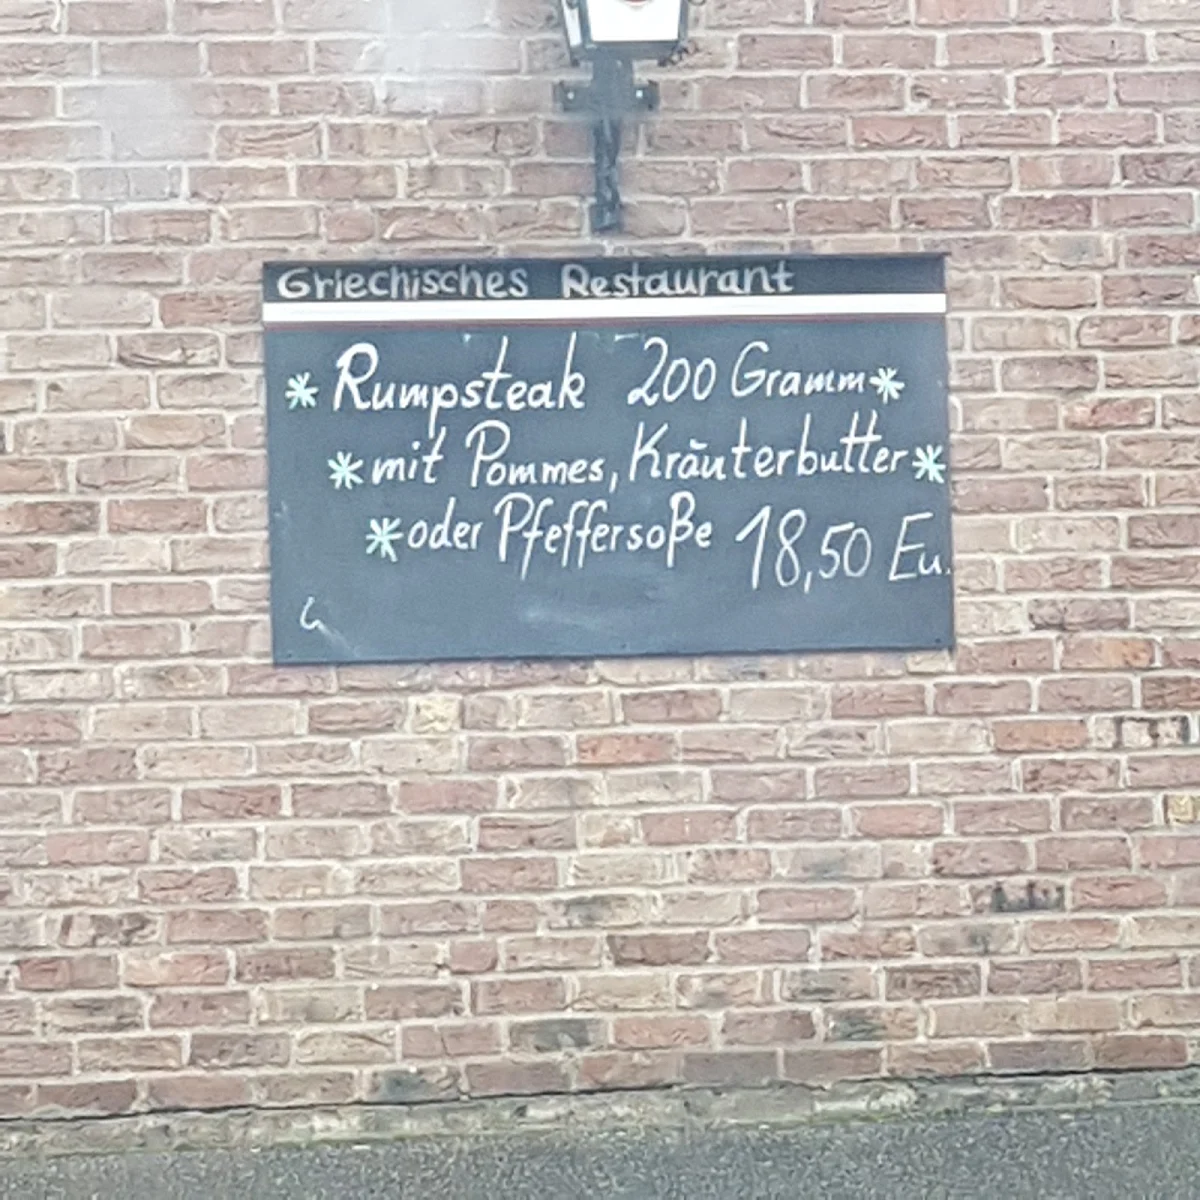 Griechisches Restaurant
* Rumpsteak 200 Gramm *
* mit Pommes, Kräuterbutter *
* oder Pfeffersoße 18,50 Eu.